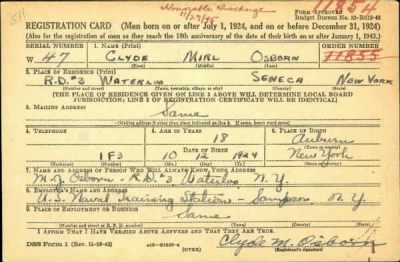 Honorable Discharge
11/27/45
REGISTRATION CARD (Men born on or after July 1, 1924, and on or before December 31, 1924)
(Also for the registration of men as they reach the 18th anniversary of the date of their birth on or after January 1, 1943.)
Form Approved
Budget Bureau No.
SERIAL NUMBER 1. NAME (Print) ORDER NUMBER
W 47 CLYDE MIRL OSBORN 11855
(First) (Middle) (Last)
2. PLACE OF RESIDENCE (Print)
R.D. #3 WATERLOO SENECA NEW YORK
(Town, township, village, or city) (County) (State)
[THE PLACE OF RESIDENCE GIVEN ON LINE 2 ABOVE WILL DETERMINE LOCAL BOARD
JURISDICTION; LINE 2 OF REGISTRATION CERTIFICATE WILL BE IDENTICAL]
3. MAILING ADDRESS
Same
4. TELEPHONE 5. AGE IN YEARS 6. PLACE OF BIRTH
18 Auburn
DATE OF BIRTH
1 F 3 10 12 1924 New York
(Exchange) (Number) (Mo.) (Day) (Yr.) (State or country)
7. NAME AND ADDRESS OF PERSON WHO WILL ALWAYS KNOW YOUR ADDRESS
M. J. Osborn - R.D. #3 Waterloo N.Y.
8. EMPLOYER'S NAME AND ADDRESS
U.S. Naval Training Station - Sampson N.Y.
9. PLACE OF EMPLOYMENT OR BUSINESS
Same
I AFFIRM THAT I HAVE VERIFIED ABOVE ANSWERS AND THAT THEY ARE TRUE.
DSS Form 1 (Over) Clyde M. Osborn
(Registrant's signature)